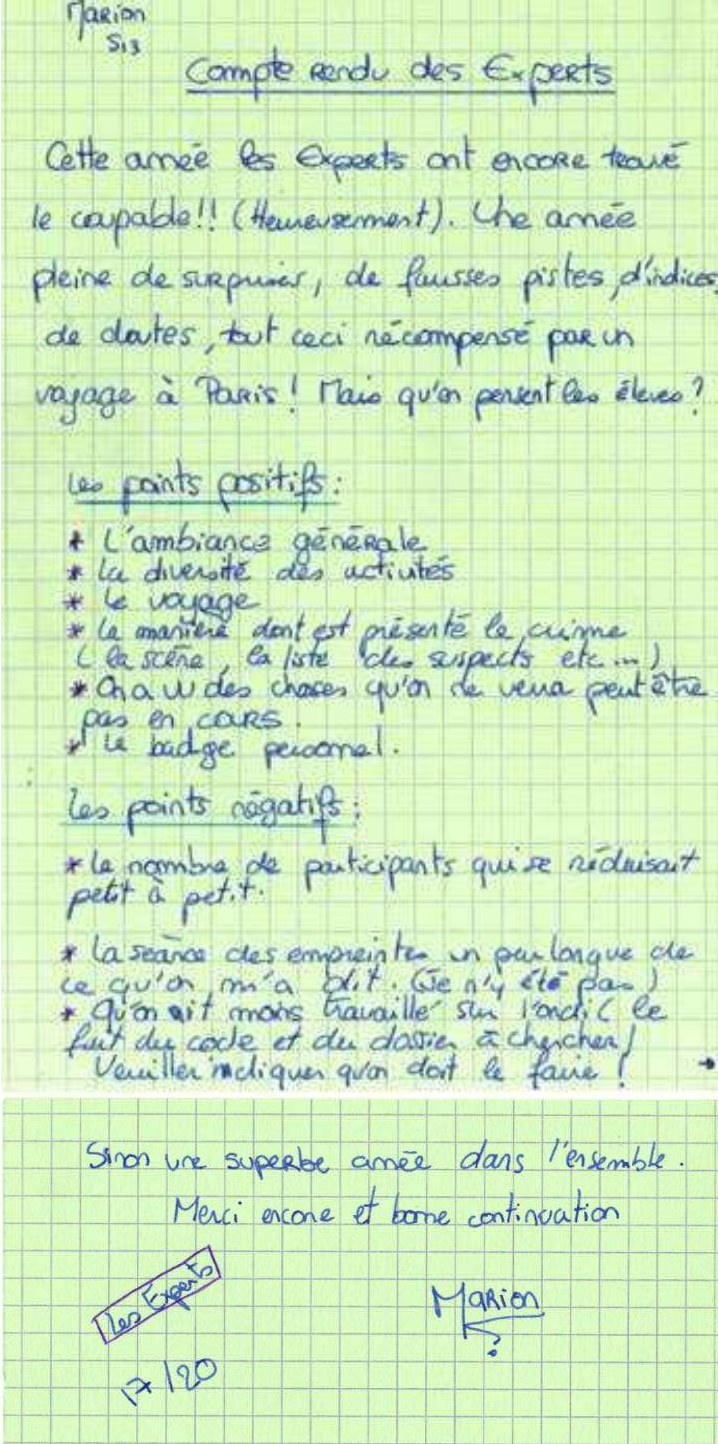 Marion
S13
Compte rendu des Experts
Cette année les Experts ont encore trouvé
le coupable!! (Heureusement). Une année
pleine de surprises, de fausses pistes, d'indices,
de doutes, tout ceci récompensé par un
voyage à Paris! Mais qu'en pensent les élèves?
Les points positifs:
* L'ambiance générale
* La diversité des activités
* Le voyage
* La manière dont est présenté le crime
( la scène, la liste des suspects etc...)
* On a vu des choses qu'on ne verra peut être
pas en cours.
* Le badge personnel.
Les points négatifs:
* Le nombre de participants qui se réduisait
petit à petit.
* La séance des empreintes un peu longue de
ce qu'on m'a dit. (Je n'y été pas)
* Qu'on ait moins travaillé sur l'ordi ( le
fait du code et du dossier à chercher)
Veuiller indiquer qu'on doit le faire!
Sinon une superbe année dans l'ensemble.
Merci encore et bonne continuation
Les Experts
Marion
17/20